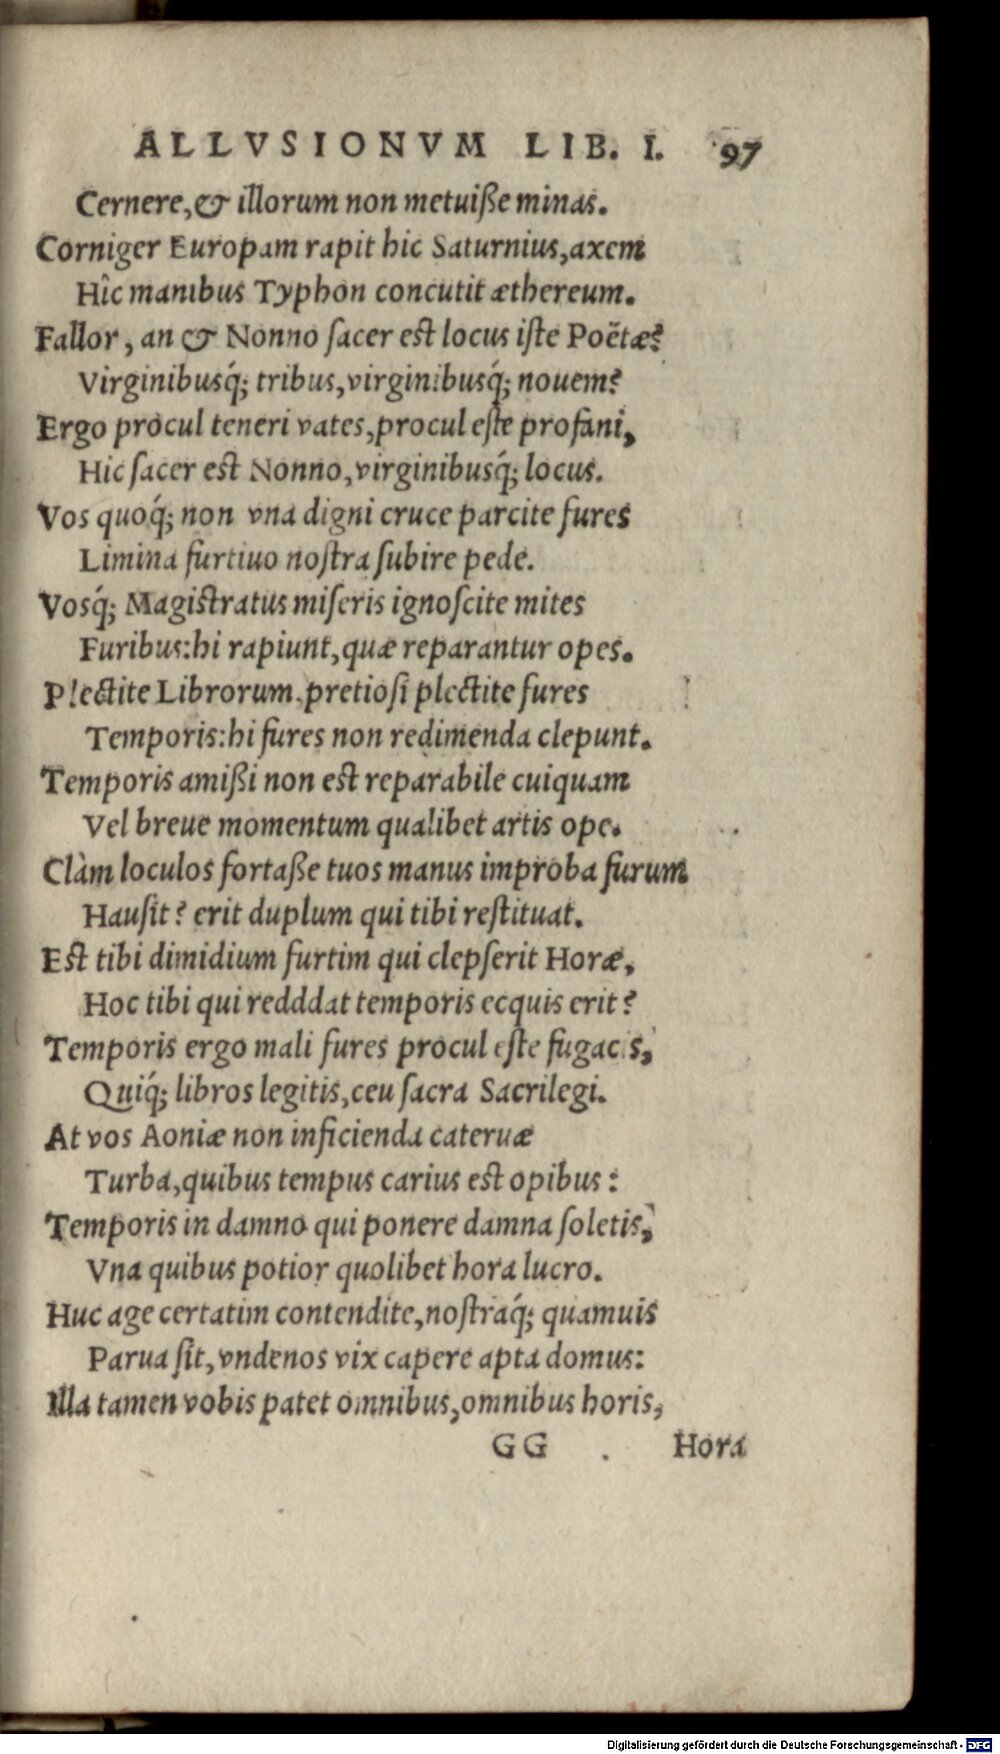 ALLVSIONVM LIB. I. 97
Cernere, & illorum non metuiße minas.
Corniger Europam rapit hic Saturnius, axem
Hîc manibus Typhon concutit æthereum.
Fallor, an & Nonno ſacer est locus iſte Poëtæ?
Virginibusq́; tribus, virginibusq́; nouem?
Ergo procul teneri vates, procul eſte profani,
Hic ſacer est Nonno, virginibusq́; locus.
Vos quoq́; non vna digni cruce parcite fures
Limina furtiuo noſtra ſubire pede.
Vosq́; Magistratus miſeris ignoſcite mites
Furibus: hi rapiunt, quæ reparantur opes.
Plectite Librorum, pretioſi plectite fures
Temporis: hi fures non redimenda clepunt.
Temporis amißi non est reparabile cuiquam
Vel breue momentum qualibet artis ope.
Clàm loculos fortaße tuos manus improba furum
Hauſit? erit duplum qui tibi reſtituat.
Est tibi dimidium furtim qui clepſerit Horæ,
Hoc tibi qui redddat temporis ecquis erit?
Temporis ergo mali fures procul eſte fugacis,
Quiq́; libros legitis, ceu ſacra Sacrilegi.
At vos Aoniæ non inficienda cateruæ
Turba, quibus tempus carius est opibus:
Temporis in damno qui ponere damna ſoletis,
Vna quibus potior quolibet hora lucro.
Huc age certatim contendite, noſtraq́; quamuis
Parua ſit, vndenos vix capere apta domus:
Illa tamen vobis patet omnibus, omnibus horis,
GG Hora
Digitalisierung gefördert durch die Deutsche Forschungsgemeinschaft - DFG